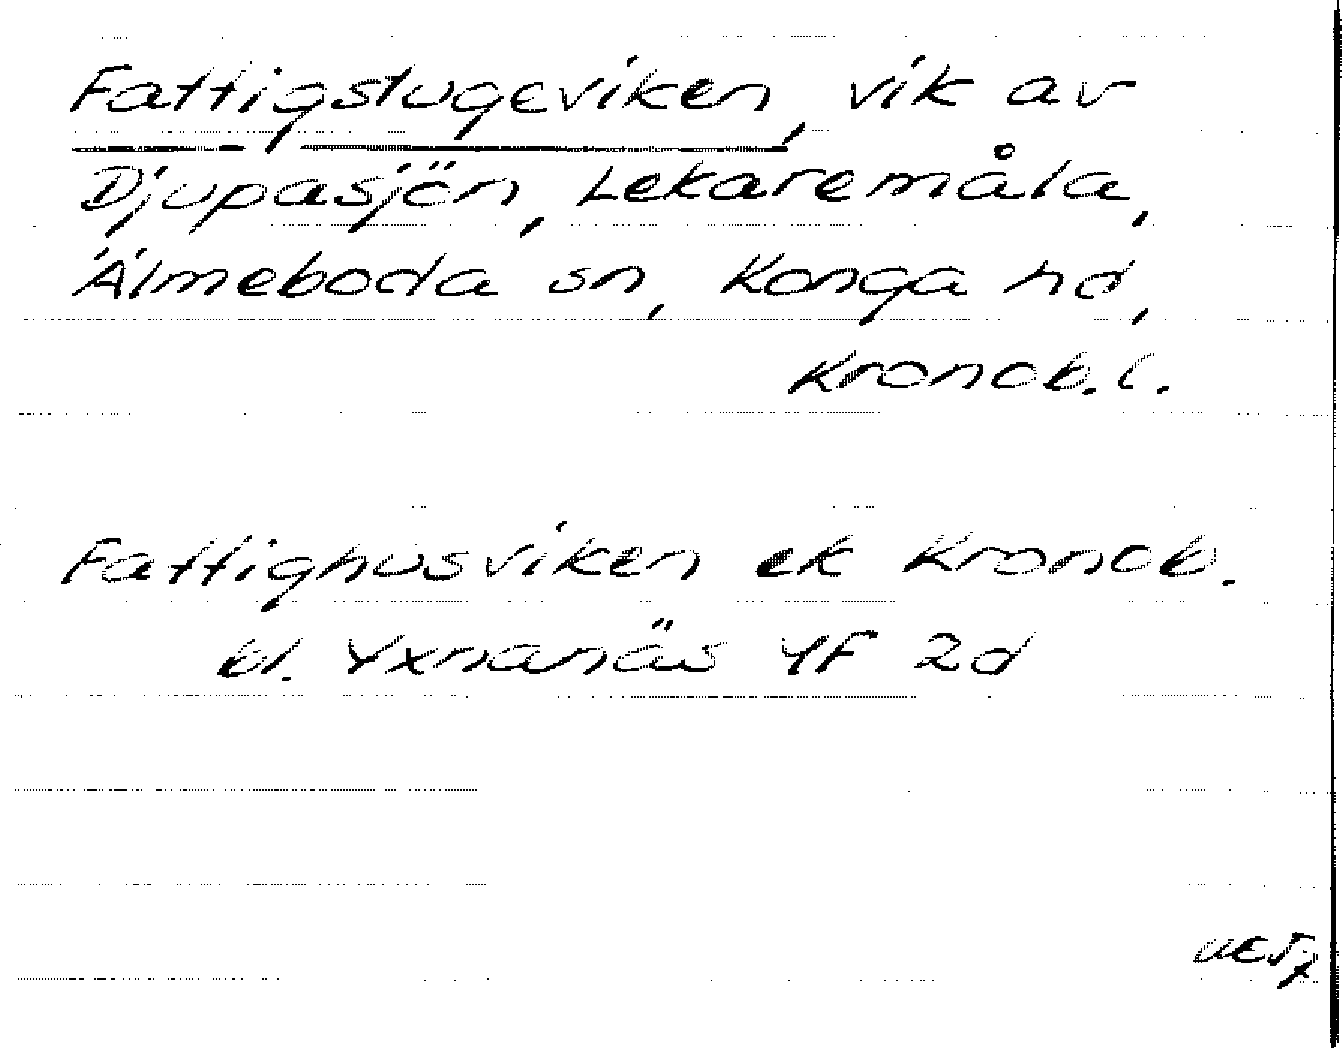 Fattigstugeviken, vik av
Djupasjön, Lekaremåla,
Älmeboda sn, Konga hd,
Kronob. l.
Fattighusviken ek Kronob.
bl. Yxnanäs 4F 2d